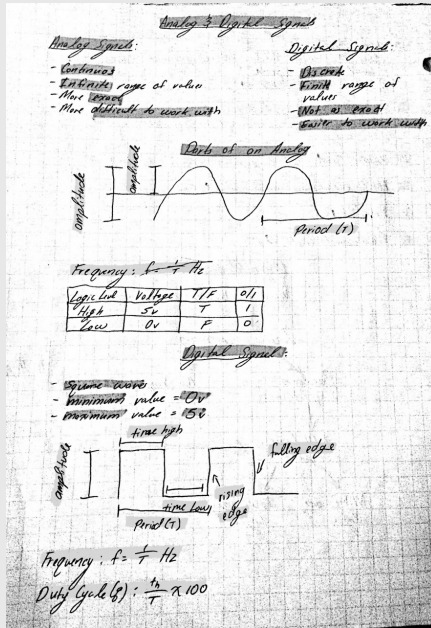 Analog & Digital Signals
Analog Signals:
- Continuos
- Infinite range of values
- More exact
- More difficult to work with
Digital Signals:
- Discrete
- Finite range of
values
- Not as exact
- Easier to work with
Parts of an Analog
amplitude
amplitude
Period (T)
Frequency: f = 1/T Hz
Logic Level Voltage T/F 0/1
High 5v T 1
Low 0v F 0
Digital Signal:
- Square waves
- minimum value = 0v
- maximum value = 5v
time high
amplitude
falling edge
rising
edge
time Low
Period (T)
Frequency: f = 1/T Hz
Duty Cycle (%): th/T x 100